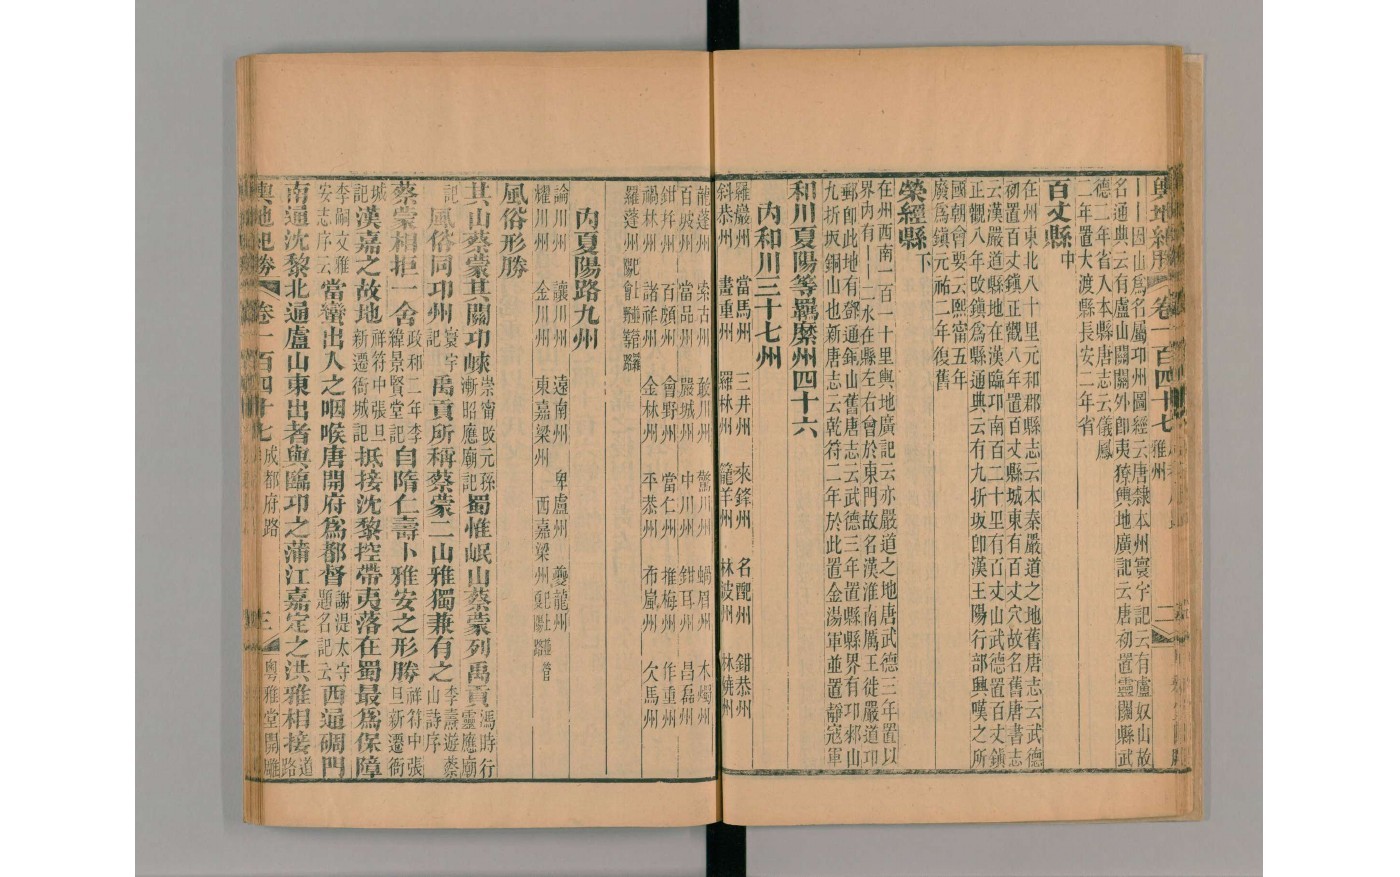 輿地紀勝 卷一百四十七 雅州 二
――因山爲名屬邛州圖經云唐隸本州寰宇記云有盧奴山故
名通典云有盧山關關外即夷獠輿地廣記云唐初置靈關縣武
德二年省入本縣唐志云儀鳳
二年置大渡縣長安二年省
百丈縣中
在州東北八十里元和郡縣志云本秦嚴道之地舊唐志云武德
初置百丈鎮正觀八年置百丈縣城東有百丈穴故名舊唐書志
云漢嚴道縣地在漢臨邛南百二十里有百丈山武德置百丈鎮
正觀八年改鎮爲縣通典云有九折坂卽漢王陽行部興嘆之所
國朝會要云熙甯五年
廢爲鎮元祐二年復舊
榮經縣下
在州西南一百一十里輿地廣記云亦嚴道之地唐武德三年置以
界內有――二水在縣左右會於東門故名漢淮南厲王徙嚴道邛
郵卽此地有鄧通銕山舊唐志云武德三年置縣縣界有邛郲山
九折坂銅山也新唐志云乾符二年於此置金湯軍並置靜寇軍
和川夏陽等羈縻州四十六
內和川三十七州
羅巖州 當馬州 三井州 來鋒州 名配州 鉗恭州
斜恭州 畫重州 羅林州 籠羊州 林波州 林燒州
龍蓬州 索古州 敢川州 驚川州 蝸眉州 木燭州
百坡州 當品州 嚴城州 中川州 鉗耳州 昌磊州
鉗幷州 百頗州 會野州 當仁州 推梅州 作重州
禍林州 諸祥州 金林州 平恭州 布嵐州 欠馬州
羅蓬州
內夏陽路九州
論川州 讓川州 遠南州 卑廬州 夔龍州
耀川州 金川州 東嘉梁州 西嘉梁州
風俗形勝
其山蔡蒙其關邛崍崇甯改元孫漸昭應廟記蜀惟岷山蔡蒙列禹貢馮時行靈應廟
記風俗同邛州寰宇記禹貢所稱蔡蒙二山雅獨兼有之李燾遊蔡山詩序
蔡蒙相拒一舍政和二年李緯景賢堂記自隋仁壽卜雅安之形勝祥符中張旦新遷衙
城記漢嘉之故地祥符中張旦新遷衙城記抵接沈黎控帶夷落在蜀最爲保障
李嗣文雅安志序云當蠻出入之咽喉唐開府爲都督謝湜太守題名記云西通碉門
南通沈黎北通盧山東出者與臨邛之蒲江嘉定之洪雅相接道路
輿地紀勝 卷一百四十七 成都府路 三 粵雅堂開雕